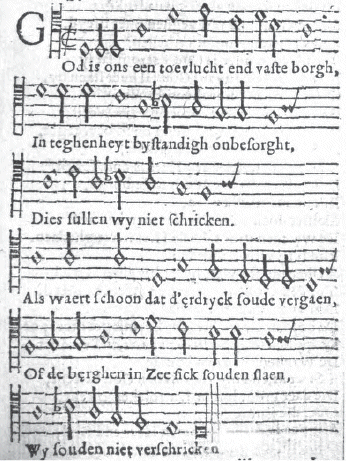 God is ons een toevlucht end vaſte borgh,
In teghenheyt byſtandigh onbeſorght,
Dies ſullen wy niet ſchricken.
Als waert ſchoon dat d'ęrdryck ſoude vergaen,
Of de bęrghen in Zee ſick ſouden ſlaen,
Wy ſouden niet verſchricken